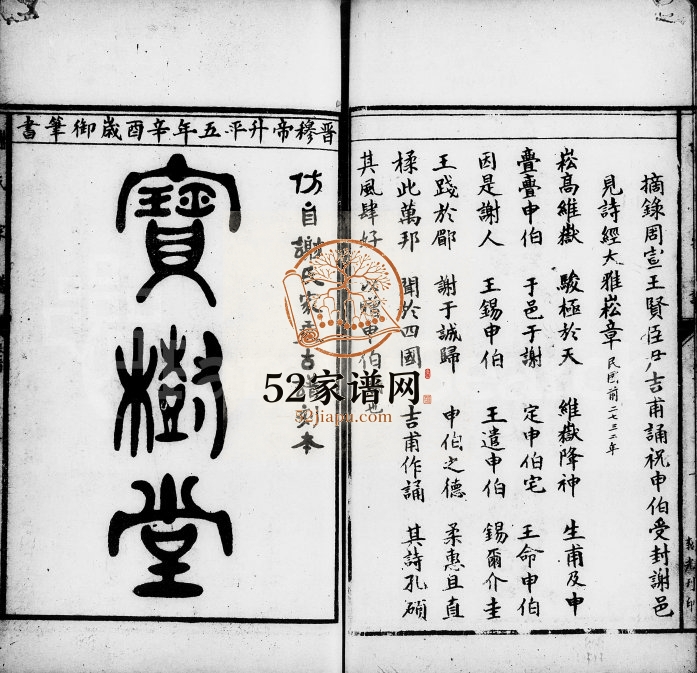 摘錄周宣王賢臣尹吉甫誦祝申伯受封謝邑
見詩經大雅崧章 民國前二七三二年
崧高維嶽 駿極於天 維嶽降神 生甫及申
亹亹申伯 于邑于謝 定申伯宅 王命申伯
因是謝人 王錫申伯 王遣申伯 錫爾介圭
王踐於郿 謝于誠歸 申伯之德 柔惠且直
揉此萬邦 聞於四國 吉甫作誦 其詩孔碩
其風肆好 申伯
晋穆帝升平五年辛酉歲御筆書
仿自謝氏家 古 刻本
寶樹堂
52家谱网
52jiapu.com